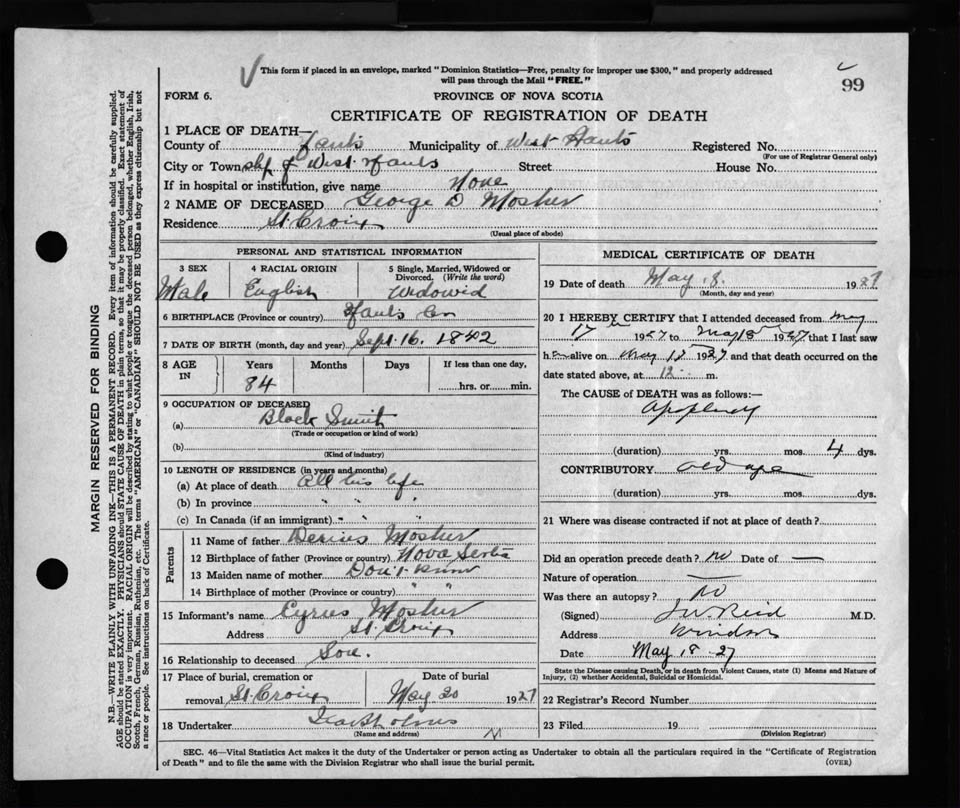 This form if placed in an envelope, marked "Dominion Statistics—Free, penalty for improper use $300," and properly addressed
will pass through the Mail "FREE."
99
FORM 6.
PROVINCE OF NOVA SCOTIA
CERTIFICATE OF REGISTRATION OF DEATH
1 PLACE OF DEATH—
County of Hants Municipality of West Hants Registered No.
(For use of Registrar General only)
City or Township of West Hants Street House No.
If in hospital or institution, give name None
2 NAME OF DECEASED George D Mosher
Residence St. Croix
(Usual place of abode)
PERSONAL AND STATISTICAL INFORMATION
3 SEX 4 RACIAL ORIGIN 5 Single, Married, Widowed or
Divorced. (Write the word)
Male English Widowid
6 BIRTHPLACE (Province or country) Hants Co
7 DATE OF BIRTH (month, day and year) Sept. 16. 1842
8 AGE IN Years Months Days If less than one day,
84 hrs. or min.
9 OCCUPATION OF DECEASED
(a) Black Smith
(Trade or occupation or kind of work)
(b)
(Kind of industry)
10 LENGTH OF RESIDENCE (in years and months)
(a) At place of death All his life
(b) In province " " "
(c) In Canada (if an immigrant) " " "
Parents
11 Name of father Derius Mosher
12 Birthplace of father (Province or country) Nova Scotia
13 Maiden name of mother Don't know
14 Birthplace of mother (Province or country) " "
15 Informant's name Cyrus Mosher
Address St. Croix
16 Relationship to deceased Son.
17 Place of burial, cremation or Date of burial
removal St. Croix May 20 1927
18 Undertaker
(Name and address)
MEDICAL CERTIFICATE OF DEATH
19 Date of death May 8. 1927
(Month, day and year)
20 I HEREBY CERTIFY that I attended deceased from May
17th 1927 to May 18th 1927 that I last saw
h alive on May 18 1927 and that death occurred on the
date stated above, at 12 m.
The CAUSE of DEATH was as follows:—
Apoplexy
(duration) yrs. mos. 4 dys.
CONTRIBUTORY old age
(duration) yrs. mos. dys.
21 Where was disease contracted if not at place of death?
Did an operation precede death? no Date of —
Nature of operation —
Was there an autopsy? no
(Signed) J W Reid M.D.
Address Windsor
Date May 18 27
State the Disease causing Death, or in death from Violent Causes, state (1) Means and Nature of
Injury, (2) whether Accidental, Suicidal or Homicidal.
22 Registrar's Record Number
23 Filed 19
(Division Registrar)
SEC. 46—Vital Statistics Act makes it the duty of the Undertaker or person acting as Undertaker to obtain all the particulars required in the "Certificate of Registration
of Death" and to file the same with the Division Registrar who shall issue the burial permit. (OVER)
MARGIN RESERVED FOR BINDING
N.B.—WRITE PLAINLY WITH UNFADING INK—THIS IS A PERMANENT RECORD. Every item of information should be carefully supplied.
AGE should be stated EXACTLY. PHYSICIANS should STATE CAUSE OF DEATH in plain terms, so that it may be properly classified. Exact statement of
OCCUPATION is very important. RACIAL ORIGIN will be described by stating to what people or tongue the deceased person belonged, whether English, Irish,
Scotch, French, German, Russian, Ruthenian, etc. The terms "AMERICAN" or "CANADIAN" SHOULD NOT BE USED as they express citizenship but not
a race or people. See instructions on back of Certificate.